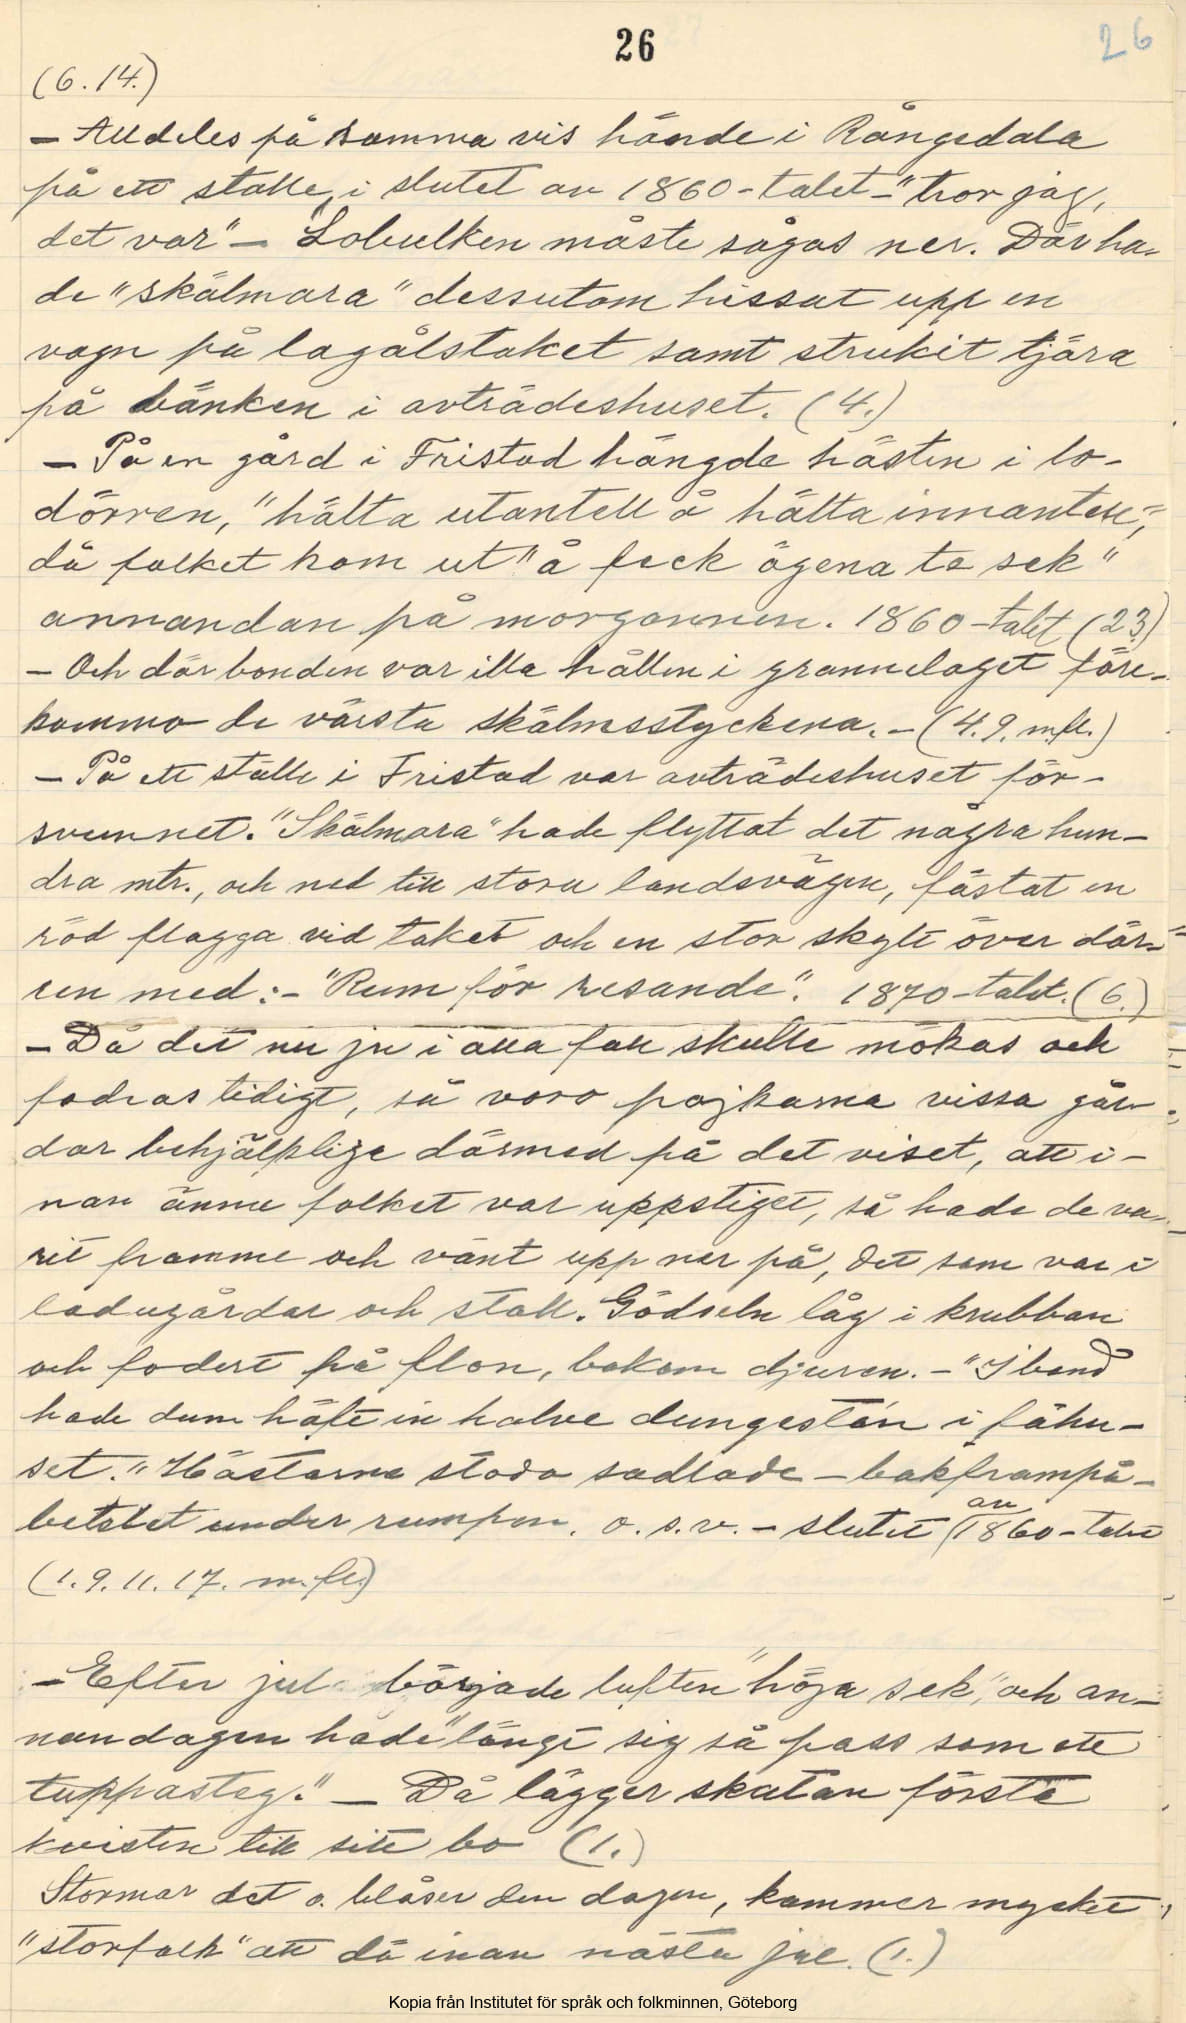 26
26
(6.14.)
– Alldeles på samma vis hände i Rångedala
på ett ställe, i slutet av 1860-talet – "tror jag,
det var" – Lobulken måste sågas ner. Där ha-
de "skälmara" dessutom hissat upp en
vagn på lagålstaket samt strukit tjära
på bänken i avträdeshuset. (4.)
– På en gård i Fristad hängde hästen i lo-
dörren, "hälta utantell å hälta innantell",
då folket kom ut "å feck ögena te sek"
annandan på morgonen. 1860-talet (23)
– Och där bonden var illa hållen i grannelaget före-
kommo de värsta skälmsstyckena. – (4.9. m.fl.)
– På ett ställe i Fristad var avträdeshuset för-
svunnet. "Skälmara" hade flyttat det några hun-
dra mtr., och ned till stora landsvägen, fästat en
röd flagga vid taket och en stor skylt över dör-
ren med: – "Rum för resande". 1870-talet. (6.)
– Då det nu ju i alla fall skulle mokas och
fodras tidigt, så voro pojkarna vissa går-
dar behjälpliga därmed på det viset, att i-
nan ännu folket var uppstiget, så hade de va-
rit framme och vänt upp ner på, det som var i
ladugårdar och stall. Gödseln låg i krubban
och fodert på flon, bakom djuren. – "Ibend
hade dum häft in halve dungestán i fähu-
set." Hästarna stodo sadlade – bakframpå –
betslet under rumpan. o.s.v. – slutet av 1860-talet
(1.9.11.17. m.fl.)
– Efter jul började luften "höja sek", och an-
nandagen hade "längt sig så pass som ett
tuppasteg." – Då lägger skatan första
kvisten till sitt bo (1.)
Stormar det o. blåser den dagen, kommer mycket
"storfolk" att dö inan nästa jul. (1.)
Kopia från Institutet för språk och folkminnen, Göteborg